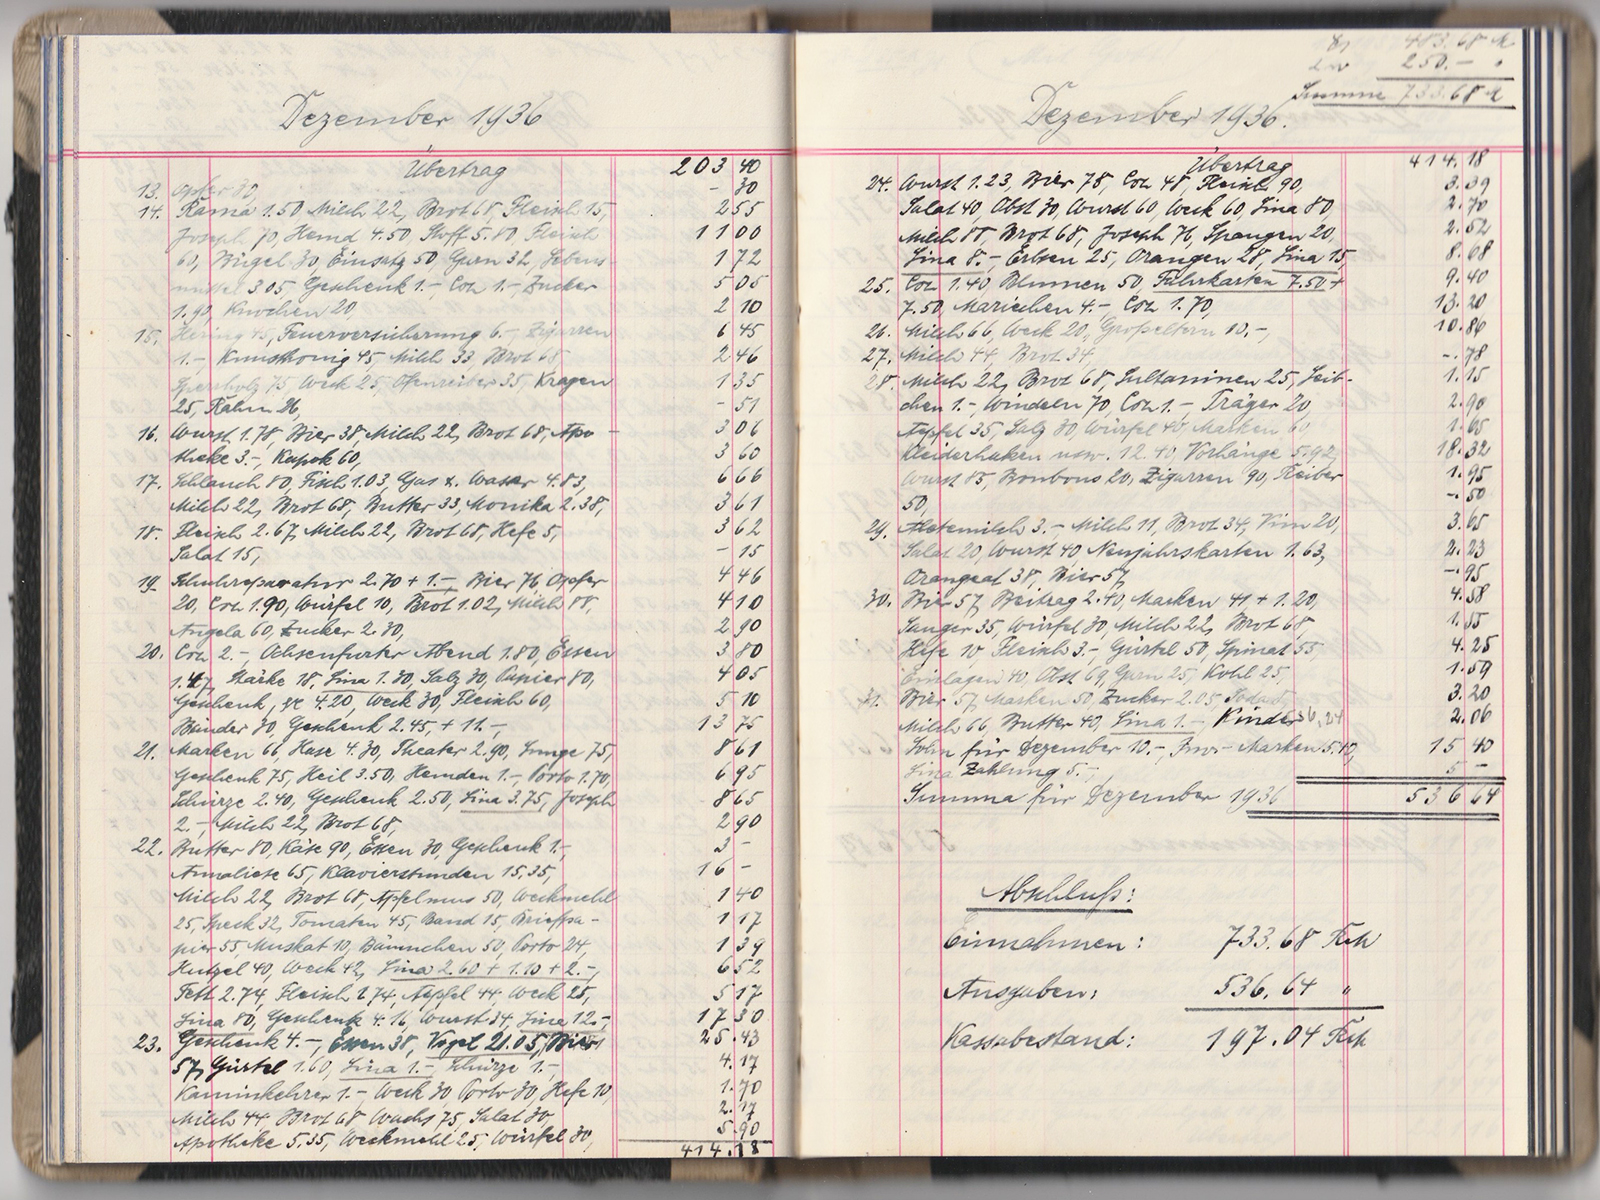 Dezember 1936
Übertrag 203 40
13. Opfer 30, - 30
14. Rama 1.50 Milch 22, Brot 68, Fleisch 15, 2 55
Joseph 70, Hemd 4.50, Stoff 5.80, Fleisch 11 00
60, Bügel 30, Einsatz 50, Garn 32, Lebens- 1 72
mittel 3.05 Geschenk 1.- 1.-, Zucker 5 05
1.90, Knochen 20, 2 10
15. Hering 45, Feuerversicherung 6.-, Zigarren 6 45
1.-, Kunsthonig 45, Milch 33, Brot 68 2 46
Sperrholz 75, Weck 25, Ofenreiber 35, Kragen 1 35
25, Rahm 26, - 51
16. Wurst 1.78, Bier 38, Milch 22, Brot 68, Apo- 3 06
theke 3.-, Kapok 60, 3 60
17. Schlauch 80, Fisch 1.03, Gas u. Wasser 4.83, 6 66
Milch 22, Brot 68, Butter 33, Monika 2.38, 3 61
18. Fleisch 2.67, Milch 22, Brot 68, Hefe 5, 3 62
Salat 15, - 15
19. Schuhreparatur 2.70 + 1.-, Bier 76, Opfer 4 46
20, 1.90, Würfel 10, Brot 1.02, Milch 88, 4 10
Angela 60, Zucker 2.30, 2 90
20. 2.-, Ochsenfurter Abend 1.80, Essen 3 80
1.47, Stärke 18, Lina 1.30, Salz 30, Papier 80, 4 05
Geschenk, 4.20, Weck 30, Fleisch 60, 5 10
Bänder 30, Geschenk 2.45, + 11.-, 13 75
21. Marken 66, Hase 4.30, Theater 2.90, Lunge 75, 8 61
Geschenk 75, Heil 3.50, Hemden 1.-, Porto 1.70, 6 95
Schürze 2.40, Geschenk 2.50, Lina 3.75, Joseph 8 65
2.-, Milch 22, Brot 68, 2 90
22. Butter 80, Käse 90, Essen 30, Geschenk 1.-, 3 -
Annaliese 65, Klavierstunden 15.35, 16 -
Milch 22, Brot 68, Apfelmus 50, Weckmehl 1 40
25, Speck 32, Tomaten 45, Band 15, Briefpa- 1 17
pier 55, Muskat 10, Bäumchen 50, Porto 24, 1 39
Hutzel 40, Weck 42, Lina 2.60 + 1.10 + 2.-, 6 52
Fett 2.74, Fleisch 1.74, Aepfel 44, Weck 25, 5 17
Lina 80, Geschenk 4.16, Wurst 34, Lina 12.-, 17 30
23. Geschenk 4.-, Essen 38, Vogel 21.05, Bier 25.43
57, Gürtel 1.60, Lina 1.-, Schürze 1.-, 4.17
Kaminkehrer 1.-, Weck 30, Porto 30, Hefe 10, 1.70
Milch 44, Brot 68, Wachs 75, Salat 30, 2.17
Apotheke 5.35, Weckmehl 25, Würfel 30, 5.90
414.18
483.68 M
250.- "
Summe 733.68 M
Dezember 1936.
Übertrag 414.18
24. Wurst 1.23, Bier 78, 48, Fleisch 90, 3.39
Salat 40, Obst 30, Wurst 60, Weck 60, Lina 80, 2.70
Milch 88, Brot 68, Joseph 76, Spangen 20, 2.52
Lina 8.- Erbsen 25, Orangen 28, Lina 15, 8.68
25. 1.40, Blumen 50, Fahrkarten 7.50 + 9.40
7.50, Mariechen 4.- 1.70, 13.20
26. Milch 66, Weck 20, Großeltern 10.-, 10.86
27. Milch 44, Brot 34, -.78
28. Milch 22, Brot 68, Sultaninen 25, Leib- 1.15
chen 1.-, Windeln 70, 1.- Träger 20, 2.90
Aepfel 35, Salz 30, Würfel 40, Marken 60 1.65
Kleiderhaken usw. 12.40, Vorhänge 5.92, 18.32
Wurst 85, Bonbons 20, Zigarren 90, Treiber 1.95
50, -.50
29. 3.-, Milch 11, Brot 34, Vim 20, 3.65
Salat 20, Wurst 40, Neujahrskarten 1.63, 2.23
Orangeat 38, Bier 57, -.95
30. Bier 57, Beitrag 2.40, Marken 41 + 1.20, 4.58
Sauger 35, Würfel 30, Milch 22, Brot 68, 1.55
Hefe 10, Fleisch 3.-, Gürtel 50, Spinat 55, 4.25
Einlagen 40, Obst 69, Garn 25, Kohl 25, 1.59
31. Bier 57, Marken 50, Zucker 2.05, 3.20
Milch 66, Butter 40, Lina 1.-, Kinder 2.06
Lohn für Dezember 10.-, Inv.- Marken 5.40, 15 40
Lina Zahlung 5.-, 5 -
Summa für Dezember 1936 536 64
Abschluß:
Einnahmen: 733.68 Rck
Ausgaben: 536.64 "
Kassabestand: 197.04 Rck